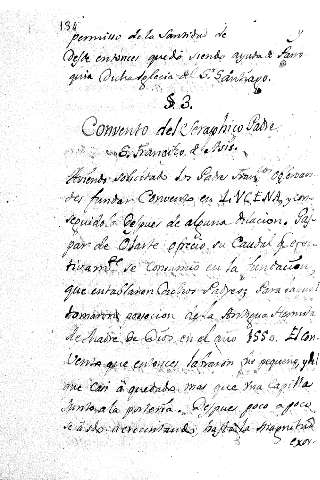 184
permisso de la Santidad de y
Desde entonces quedó siendo ayuda de Parro
quia Dicha Iglesia del Sr. Santiago.
§. 3.
Convento del Seraphico Padre
S. Francisco de Asis.
Haviendo solicitado los Padres Observan
tes fundar Convento en LUCENA, y con
seguidolo Despues de alguna dilacion. Gas
par de Olarte ofrecio su Caudal
se consumió en la fundacion,
que entablaron Dichos Padres; Para
tomaron la Antigua Hermita
de Madre de Dios, en el año 1550. El Con
vento que entonces labraron pequeño, y
me Casi á quedado mas que Vna Capilla
Junto a la porteria. Despues poco a poco
se á ido acrecentando, hasta la magnitud
exor-